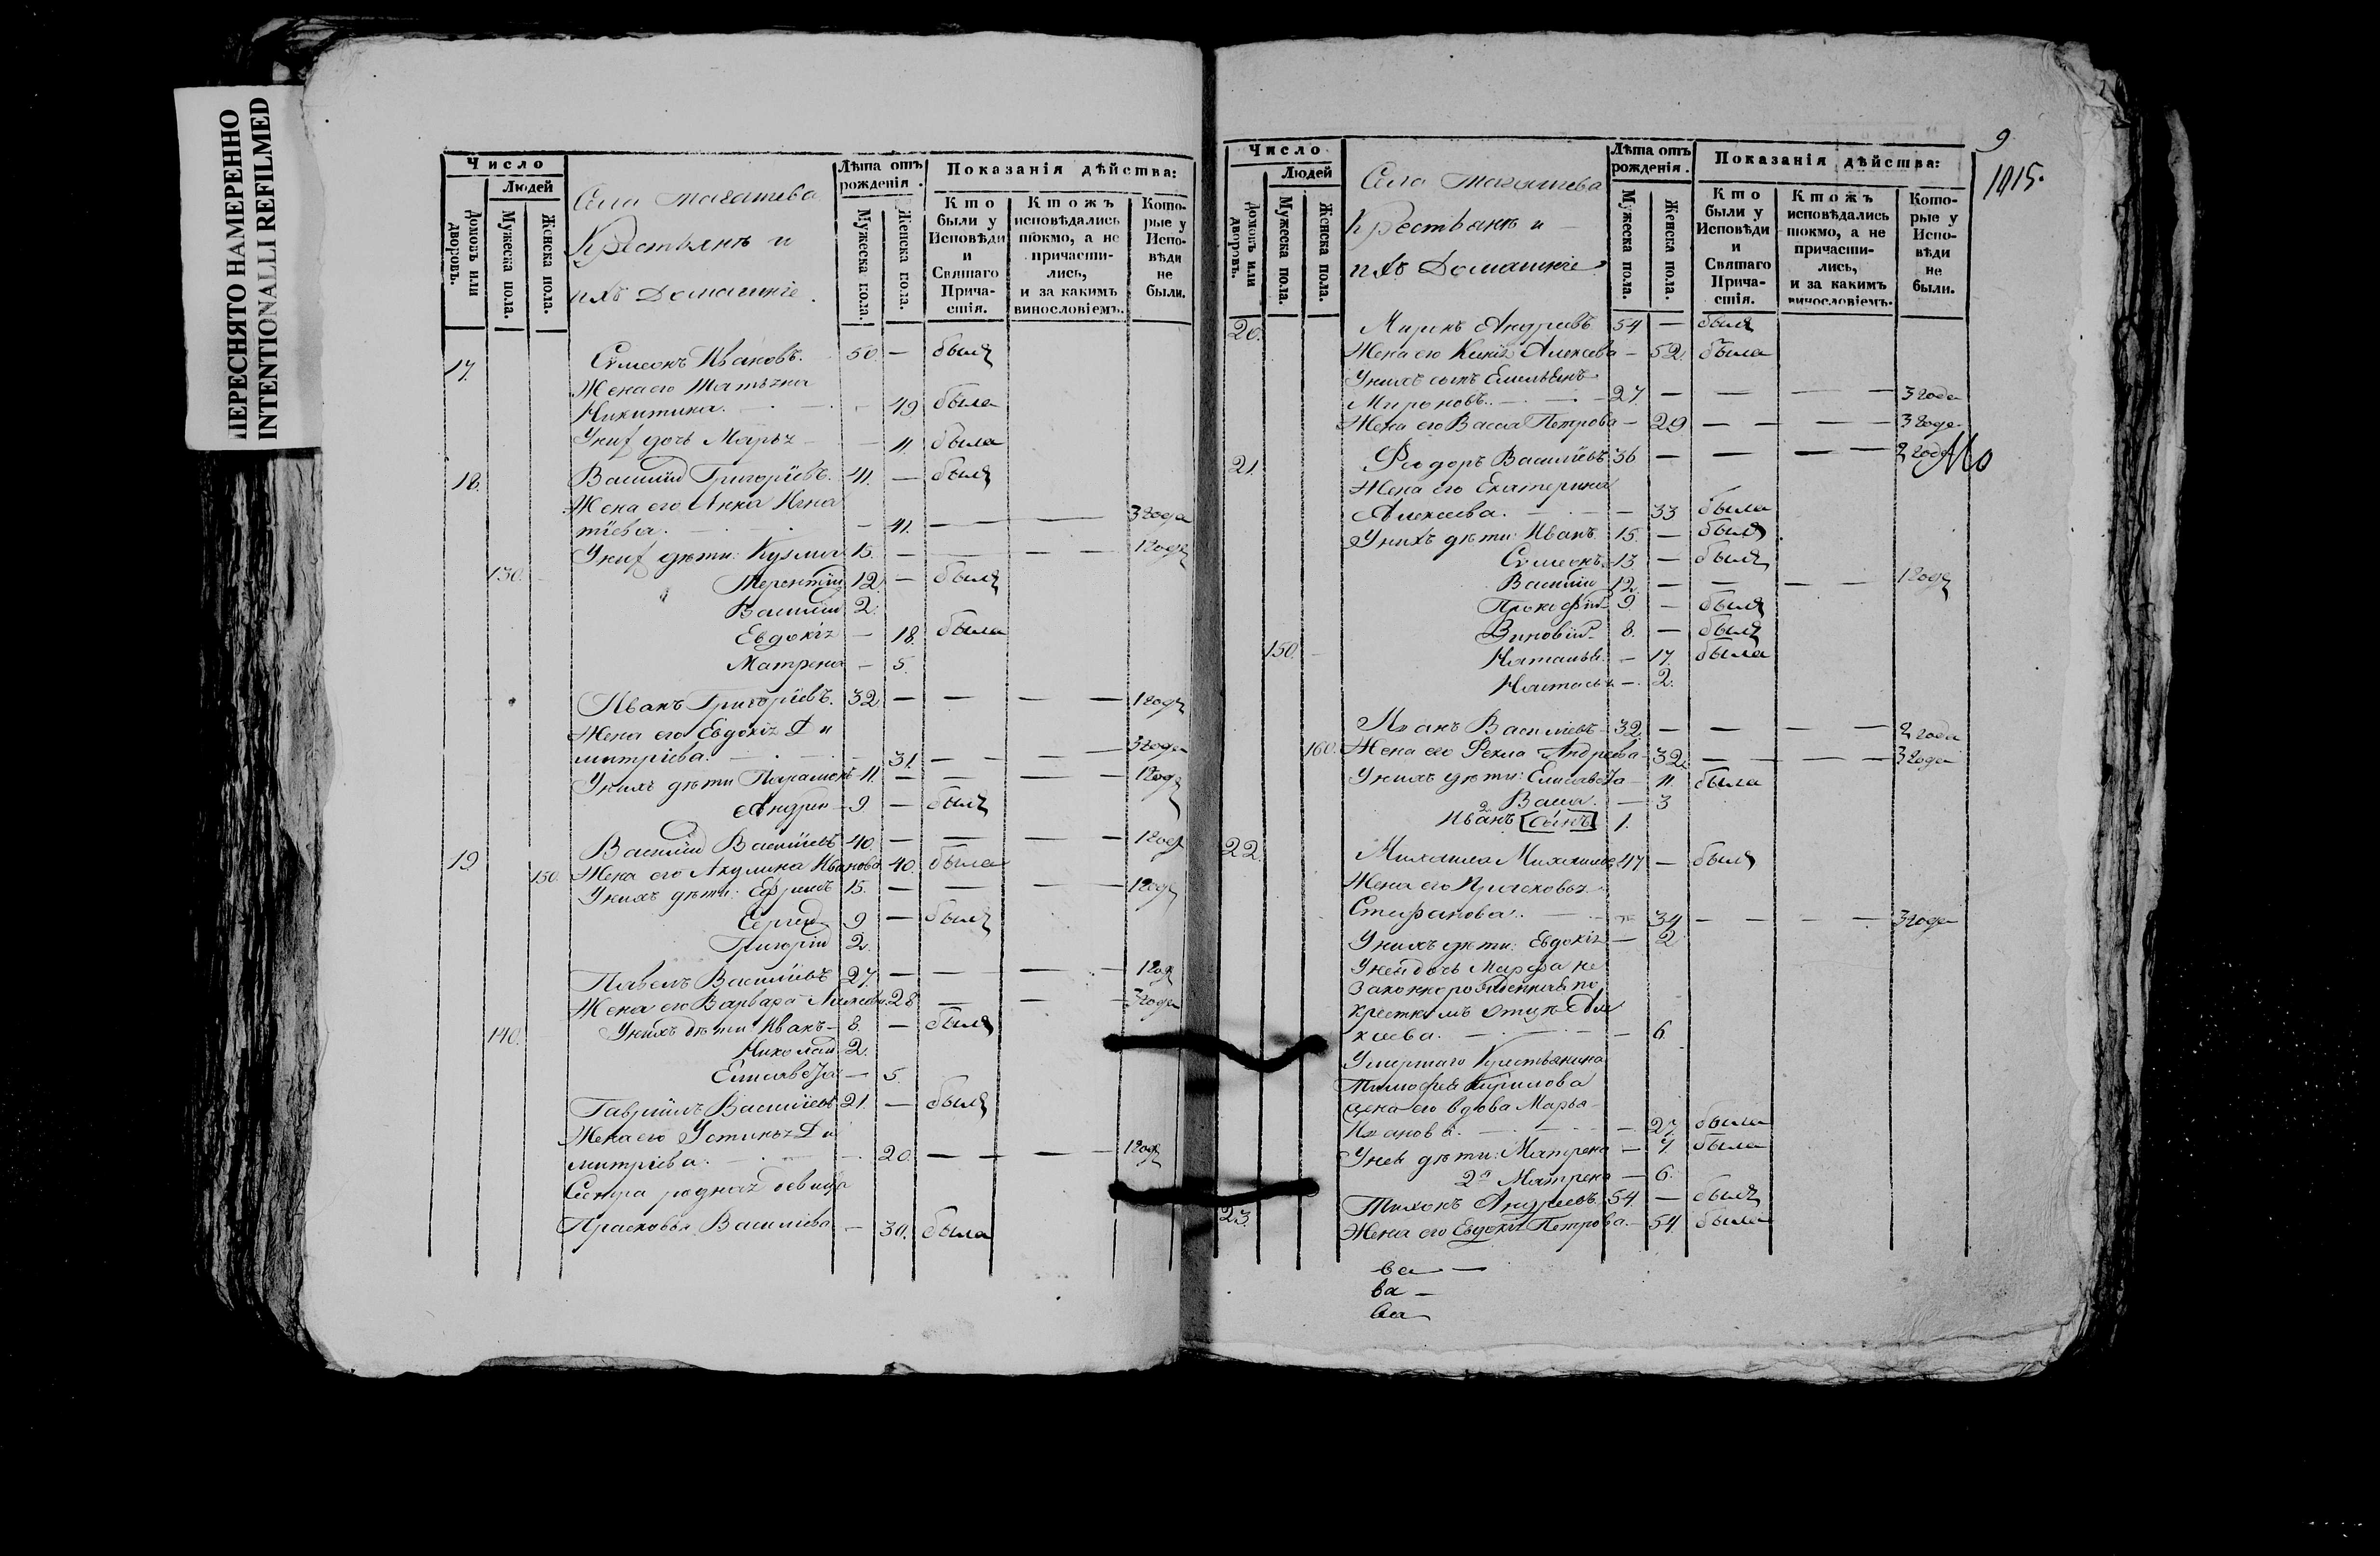 ПЕРЕСНЯТО НАМЕРЕННО
INTENTIONALLI REFILMED
Число
Людей
Домовъ или дворовъ.
Мужеска пола.
Женска пола.
Села
Крестьянъ и
ихъ Домашніе
Лѣта отъ рожденія.
Мужеска пола.
Женска пола.
Показанія дѣйства:
Кто были у Исповѣди и Святаго Причастія.
Ктожъ исповѣдались токмо, а не причастились, и за какимъ винословіемъ.
Которые у Исповѣди не были.
17. Сѵмеонъ Ивановъ. 50. — былъ
Жена его Татьяна
Никитина. — 49 была
У них дочь Марья — 11. была
18. Василій Григоріевъ. 41. — былъ
Жена его Анна Игна
тіева. — 41. — — 3 года
У них дѣти: Кузьма 15. — — — 1 годъ
130. Терентій 12. — былъ
Василій 2.
Евдокія — 18. была
Матрена — 5.
Иванъ Григоріевъ. 32 — — — 1 годъ
Жена его Евдокія Ди
митріева. 31. — — — 3 года
У нихъ дѣти Парамонъ 11. — — — 1 годъ
Андрей — 9 — былъ
19 Василій Василіевъ 40. — — — 1 годъ
150. Жена его Акулина Иванова 40. была
У нихъ дѣти: Ефремъ 15. — — — 1 годъ
Сергей 9 — былъ
Григорій 2.
Павелъ Василіевъ 27. — — — 1 годъ
Жена его Варвара 28 — — 3 года
140. У нихъ дѣти Иванъ 8. — былъ
Николай 2.
Елисавета — 5.
Гавріилъ Василіевъ 21. — былъ
Жена его Устинья Ди
митріева. — 20. — — — 1 годъ
Сестра родная девица
Прасковья Василіева — 30. была
9
1015.
Число
Людей
Домовъ или дворовъ.
Мужеска пола.
Женска пола.
Села
Крестьянъ и
ихъ Домашніе
Лѣта отъ рожденія.
Мужеска пола.
Женска пола.
Показанія дѣйства:
Кто были у Исповѣди и Святаго Причастія.
Ктожъ исповѣдались токмо, а не причастились, и за какимъ винословіемъ.
Которые у Исповѣди не были.
20. Миронъ Андреевъ 54 — былъ
Жена его Алексева — 52. была
У нихъ сынъ Емельянъ
Мироновъ. 27. — — — 3 года
Жена его Васса Петрова — 29 — — — 3 года
21. Ѳеодоръ Василіевъ 36 — — — 2 года
Жена его Екатерина
Алексеева. — 33 была
У нихъ дѣти: Иванъ. 15. — былъ
Сѵмеонъ 13. — былъ
Василій 12. — — — 1 годъ
Прокофій 9. — былъ
Зиновій 8. — былъ
150. Наталья — 17. была
Настасья — 2.
Иванъ Василіевъ 32. — — — 2 года
160. Жена его Ѳекла Андреева 32. — — — 3 года
У нихъ дѣти: Елисавета — 11. была
Васса. — 3
Иванъ сынъ 1.
22. Михаила Михаиловъ 47 — былъ
Жена его Прасковья
Стефанова. — 34 — — — 3 года
У нихъ дѣти: Евдокія — 2
У ней дочь Марфа не
законнорожденная по
крестномъ отцѣ
— 6
Умершаго Крестьянина
Тимофея Кирилова
жена его вдова Марья
— 27. была
У нея дѣти: Матрена — 9. была
2я Матрена — 6.
23. Тихонъ Андреевъ. 54. — былъ
Жена его Евдокія Петрова. — 54. была
ва —
ва —
ва